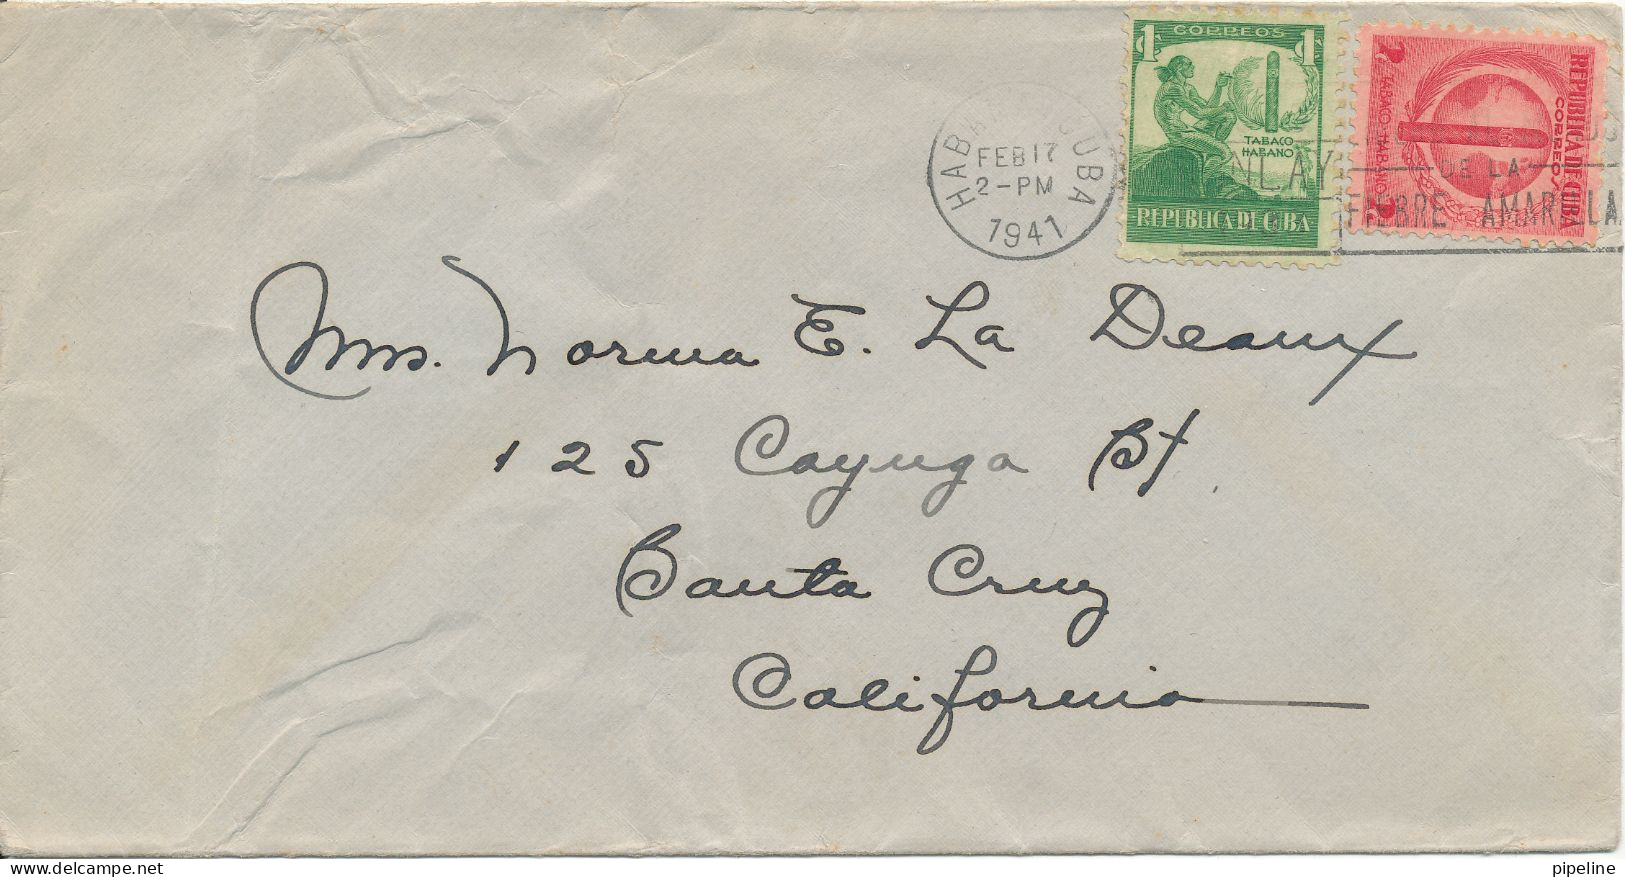 CORREOS
1 C 1 C
TABACO
HABANO
REPUBLICA DE CUBA
REPUBLICA DE CUBA
CORREOS
TABACO HABANO
HABANA CUBA
FEB 17
2-PM
1941
NLAY
DE LA
FIEBRE AMARILLA
Mrs. Norma E. La Deaux
125 Cayuga St.
Santa Cruz
California
pipeline